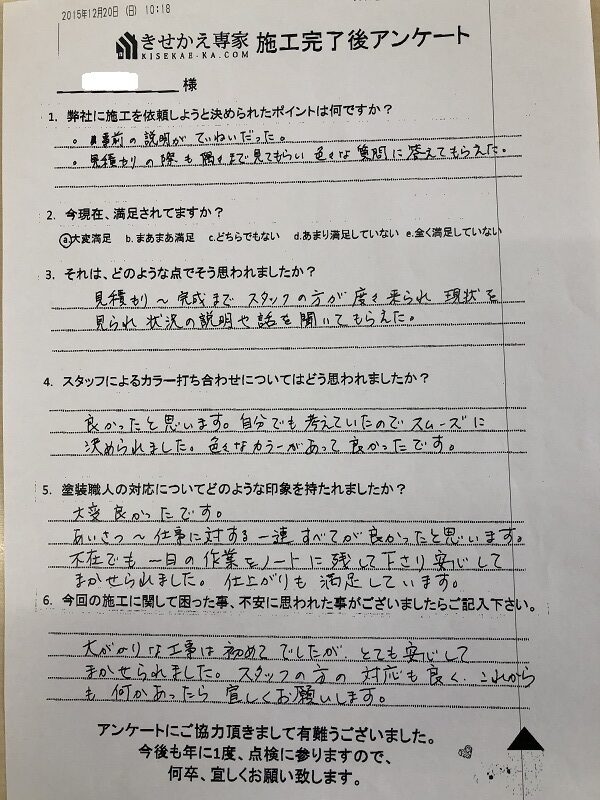 2015年12月20日 (日) 10:18
きせかえ専家 施工完了後アンケート
KISEKAE-KA.COM
様
1. 弊社に施工を依頼しようと決められたポイントは何ですか?
。事前の説明がていねいだった。
。見積もりの際も隅々まで見てもらい色々な質問に答えてもらえた。
2. 今現在、満足されてますか?
a.大変満足 b.まあまあ満足 c.どちらでもない d.あまり満足していない e.全く満足していない
3. それは、どのような点でそう思われましたか?
見積もり〜完成までスタッフの方が度々来られ 現状を
見られ状況の説明や話を聞いてもらえた。
4. スタッフによるカラー打ち合わせについてはどう思われましたか?
良かったと思います。自分でも考えていたのでスムーズに
決められました。色々なカラーがあって良かったです。
5. 塗装職人の対応についてどのような印象を持たれましたか?
大変良かったです。
あいさつ〜仕事に対する一連すべてが良かったと思います。
不在でも一日の作業をノートに残して下さり安心して
まかせられました。仕上がりも満足しています。
6. 今回の施工に関して困った事、不安に思われた事がございましたらご記入下さい。
大がかりな工事は初めてでしたが、とても安心して
まかせられました。スタッフの方の対応も良く、これから
も何かあったら宜しくお願いします。
アンケートにご協力頂きまして有難うございました。
今後も年に1度、点検に参りますので、
何卒、宜しくお願い致します。